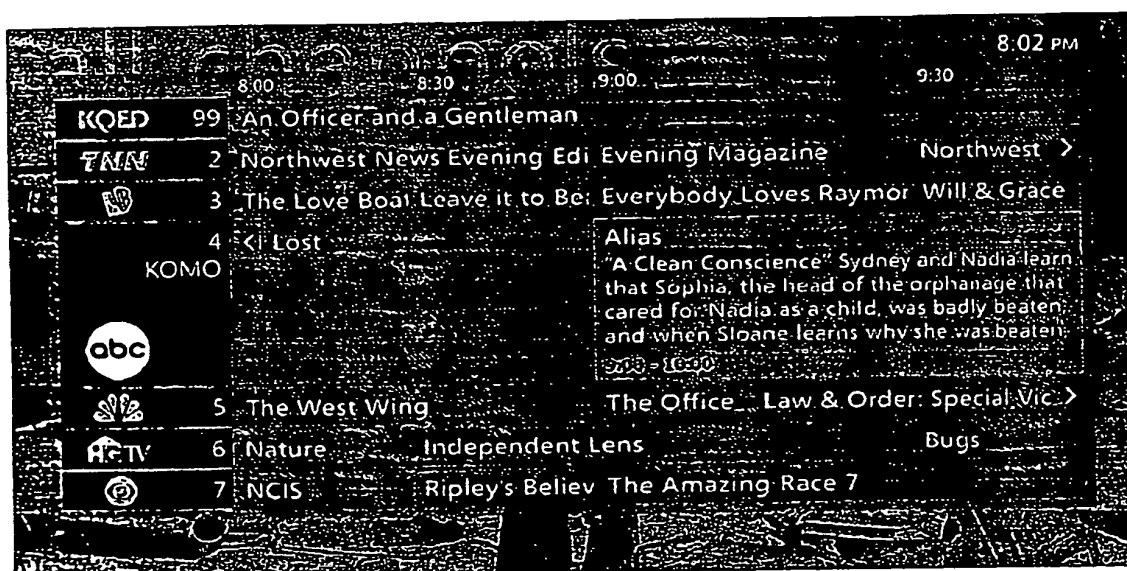 8:02 PM
8:00 8:30 9:00 9:30
KQED 99 An Officer and a Gentleman
TNN 2 Northwest News Evening Edi Evening Magazine Northwest >
3 The Love Boat Leave it to Be Everybody Loves Raymor Will & Grace
4 < Lost
KOMO
abc
Alias
"A Clean Conscience" Sydney and Nadia learn
that Sophia, the head of the orphanage that
cared for Nadia as a child, was badly beaten
and when Sloane learns why she was beaten
9:00 - 10:00
5 The West Wing The Office Law & Order: Special Vic >
HGTV 6 Nature Independent Lens Bugs
7 NCIS Ripley's Believ The Amazing Race 7